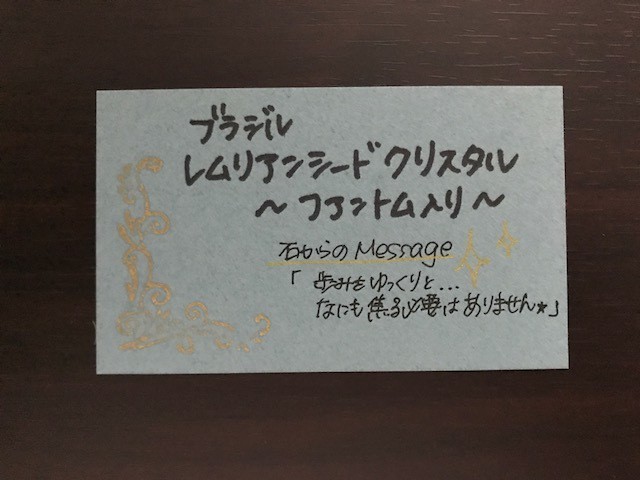 ブラジル
レムリアンシードクリスタル
～ファントム入り～
石からのMessage
「歩みをゆっくりと...
なにも焦る必要はありません★」